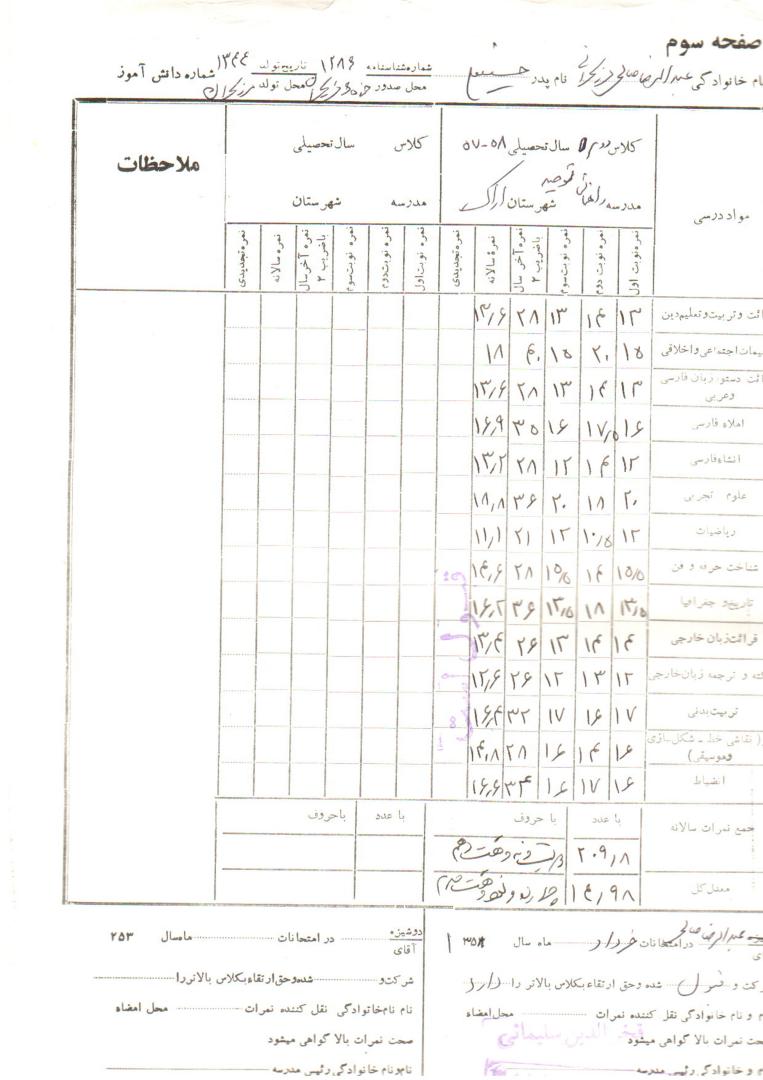 صفحه سوم
نام خانوادگی عبدالرضا صالحی مرزیجرانی نام پدر حسین شماره شناسنامه ۱۲۸۶ تاریخ تولد ۱۳۴۴ شماره دانش آموز
محل صدور محل تولد مرزیجران
مواد درسی
کلاس دوم سال تحصیلی ۵۸-۵۷
مدرسه راهنمائی توحید شهرستان اراک
کلاس سال تحصیلی
مدرسه شهرستان
ملاحظات
نمره نوبت اول نمره نوبت دوم نمره نوبت سوم نمره آخر سال با ضریب ۲ نمرۀ سالانه نمره تجدیدی
نمره نوبت اول نمره نوبت دوم نمره نوبت سوم نمره آخر سال با ضریب ۲ نمره سالانه نمره تجدیدی
ائت و تربیت و تعلیم دین ۱۳ ۱۴ ۱۳ ۲۸ ۱۳/۶
یمات اجتماعی و اخلاقی ۱۵ ۲۰ ۱۵ ۴۰ ۱۸
ائت دستور زبان فارسی وعربی ۱۳ ۱۴ ۱۳ ۲۸ ۱۳/۶
املاء فارسی ۱۶ ۱۷/۵ ۱۶ ۳۵ ۱۶/۹
انشاء فارسی ۱۲ ۱۴ ۱۲ ۲۸ ۱۳/۲
علوم تجربی ۲۰ ۱۸ ۲۰ ۳۶ ۱۸/۸
ریاضیات ۱۲ ۱۰/۵ ۱۲ ۲۱ ۱۱/۱
شناخت حرفه و فن ۱۵/۵ ۱۴ ۱۵/۵ ۲۸ ۱۴/۶
تاریخ و جغرافیا ۱۳/۵ ۱۸ ۱۳/۵ ۳۶ ۱۶/۲
قرائت زبان خارجی ۱۴ ۱۴ ۱۳ ۲۶ ۱۳/۴
ته و ترجمه زبان خارجی ۱۲ ۱۳ ۱۲ ۲۶ ۱۲/۶
تربیت بدنی ۱۷ ۱۶ ۱۷ ۳۲ ۱۶/۴
( نقاشی خط - شکل سازی وموسیقی) ۱۶ ۱۴ ۱۶ ۲۸ ۱۴/۸
انضباط ۱۶ ۱۷ ۱۶ ۳۴ ۱۶/۶
با عدد با حروف با عدد با حروف
جمع نمرات سالانه ۲۰۹/۸ دویست و نه و هشت دهم
معدل کل ۱۴/۹۸ چهارده و نود و هشت صدم
عبدالرضا صالحی در امتحانات خرداد ماه سال ۱۳۵۸
رکت و قبول شده وحق ارتقاء بکلاس بالاتر را دارد
م و نام خانوادگی نقل کننده نمرات محل امضاء
سلیمانی
حت نمرات بالا گواهی میشود
م و نام خانوادگی رئیس مدرسه
دوشیزه
آقای در امتحانات ماه سال ۲۵۳
شرکت و شده وحق ارتقاء بکلاس بالاتر را
نام نام خانوادگی نقل کننده نمرات محل امضاء
صحت نمرات بالا گواهی میشود
نام و نام خانوادگی رئیس مدرسه